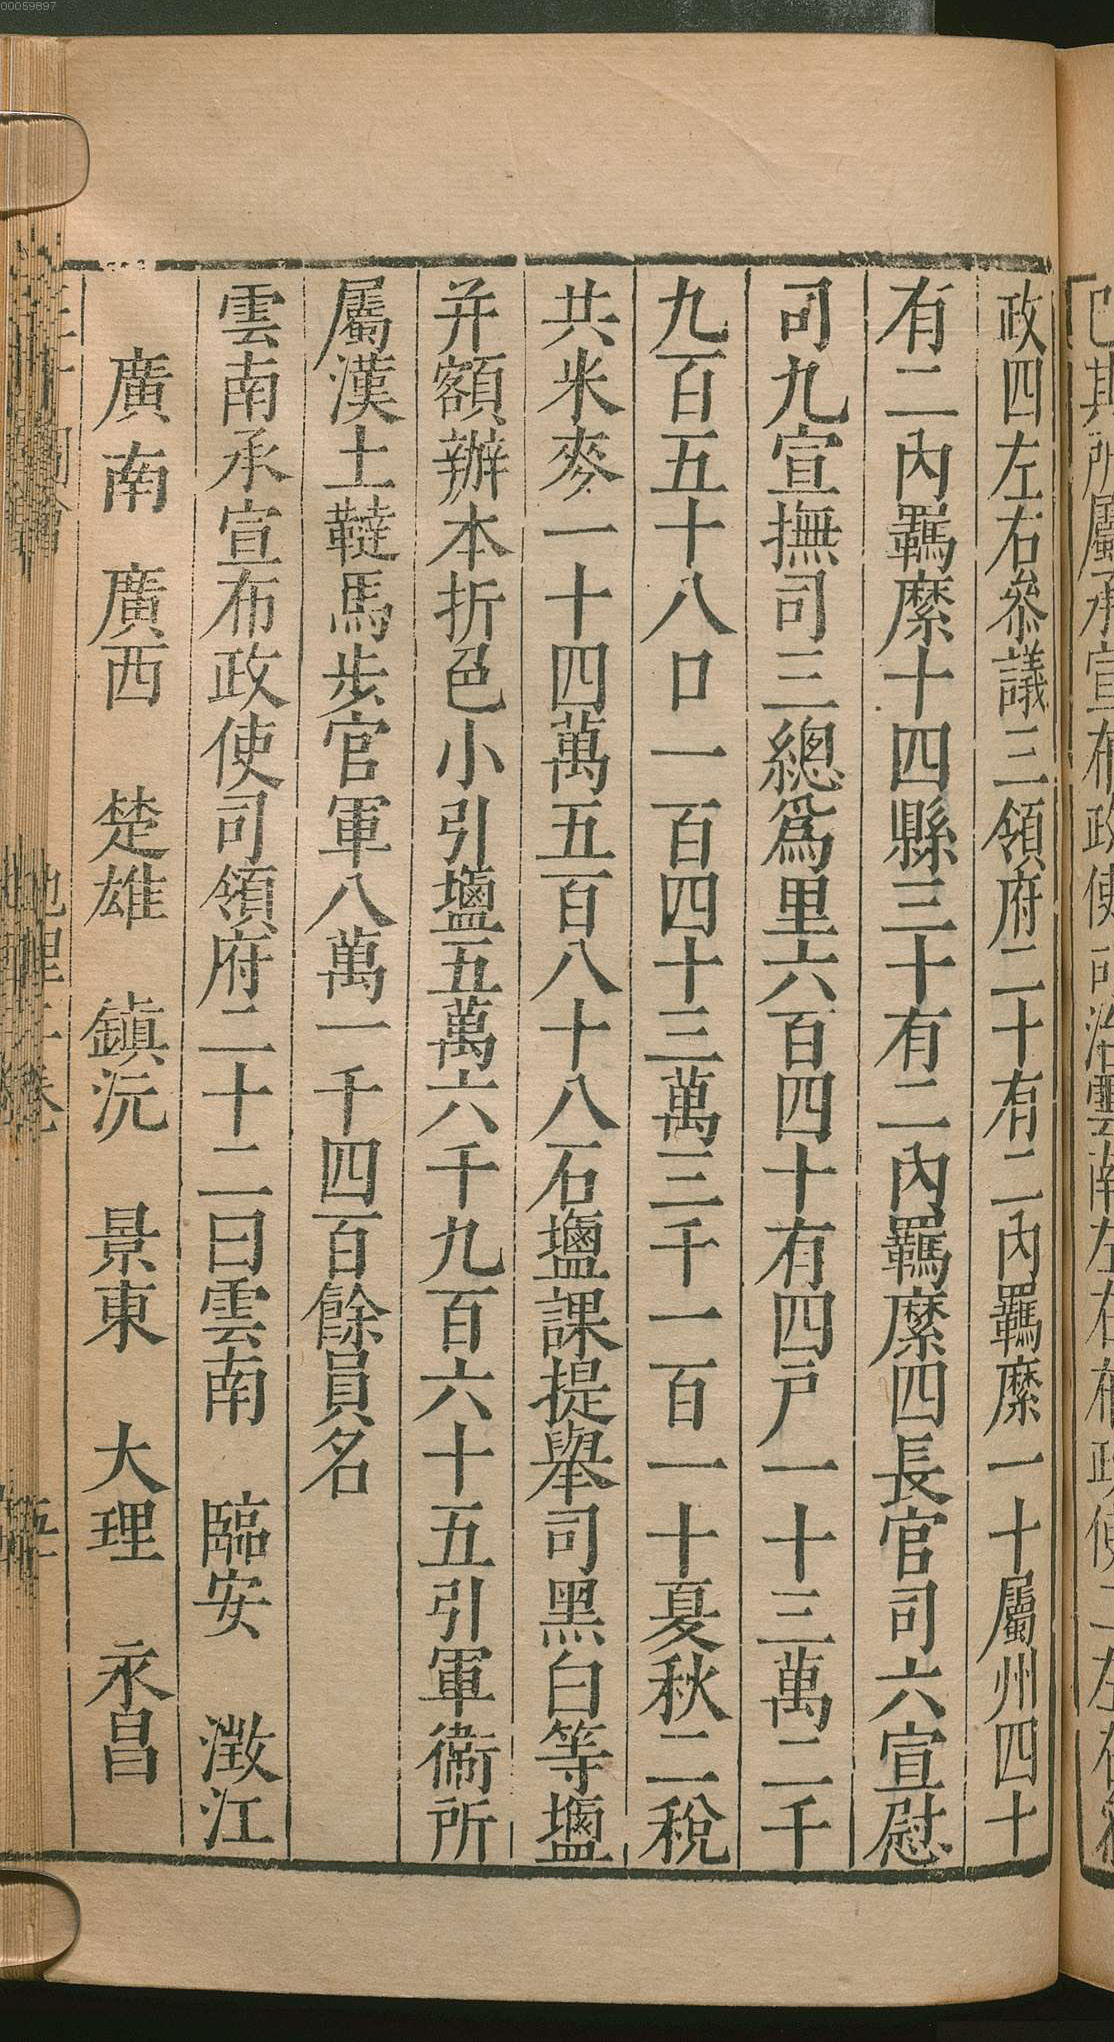 00059897
政四左右參議三領府二十有二內羈縻一十屬州四十
有二內羈縻十四縣三十有二內羈縻四長官司六宣慰
司九宣撫司三總爲里六百四十有四戸一十三萬二千
九百五十八口一百四十三萬三千一百一十夏秋二稅
共米麥一十四萬五百八十八石鹽課提舉司黑白等鹽
并額辦本折色小引鹽五萬六千九百六十五引軍衞所
屬漢土韃馬步官軍八萬一千四百餘員名
雲南承宣布政使司領府二十二曰雲南 臨安 澂江
廣南 廣西 楚雄 鎮沅 景東 大理 永昌